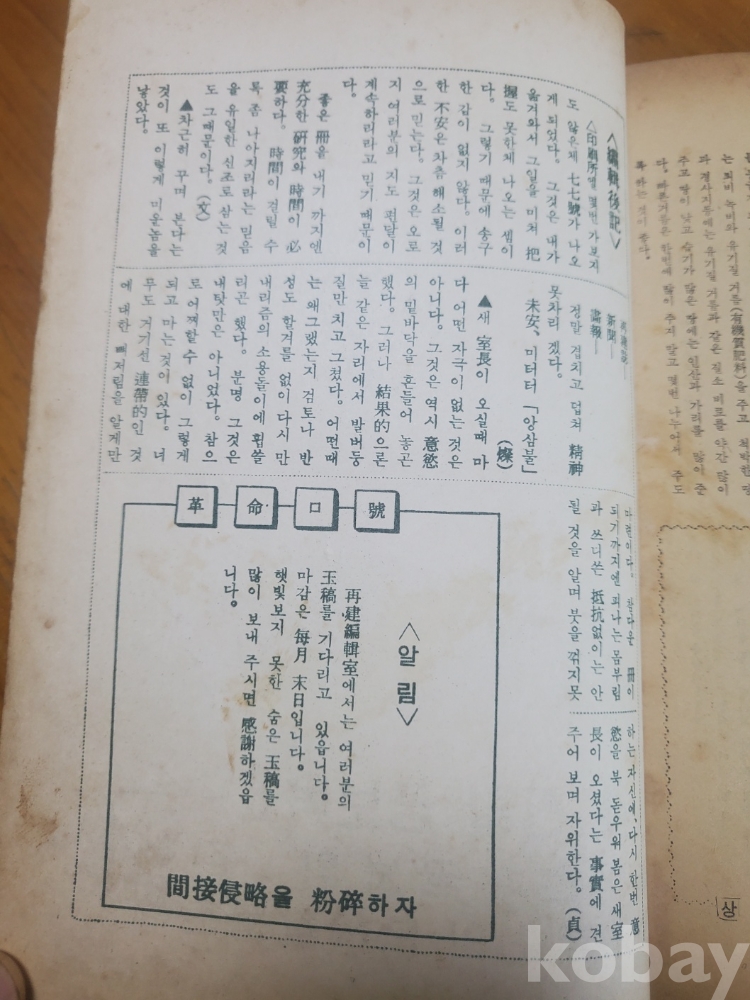 <編輯後記>
△印刷所엘 몇번 가보지
도 않은체 七七號가 나오
게 되었다。 그것은 내가
옮겨와서 그일을 미쳐 把
握도 못한체 나오는 셈이
다。 그렇기 때문에 송구
한 감이 없지 않다。 이러
한 不安은 차츰 해소될 것
으로 믿는다。 그것은 오로
지 여러분의 지도 편달이
계속하리라고 믿기 때문이
다。
좋은 冊을 내기 까지엔
充分한 硏究와 時間이 必
要하다。 時間이 걸릴 수
록 좀 나아지리라는 믿음
을 유일한 신조로 삼는 것
도 그때문이다。 (文)
▲차근히 꾸며 본다는
것이 또 이렇게 미운놈을
낳았다。
新聞—
畵報—
정말 겹치고 덥쳐 精神
못차리 겠다。
未安、 미터터 「앙삼불」
(燦)
▲새 室長이 오실때 마
다 어떤 자극이 없는 것은
아니다。 그것은 역시 意慾
의 밑바닥을 흔들어 놓곤
했다。 그러나 結果的으론
늘 같은 자리에서 발버둥
질만 치고 그쳤다。 어떤때
는 왜그랬는지 검토나 반
성도 할겨를 없이 다시 만
내리즘의 소용돌이에 휩쓸
리곤 했다。 분명 그것은
내탓만은 아니었다。 참으
로 어쩌할 수 없이 그렇게
되고 마는것이 있다。 너
무도 거기선 連帶的인 것
에 대한 뼈저림을 알게만
마련이다。 참다운 冊이
되기까지엔 피나는 몸부림
과 쓰디쓴 抵抗없이는 안
될 것을 알며 붓을 꺾지못
하는 자신에、 다시 한번 意
慾을 북 돋우워 봄은 새 室
長이 오셨다는 事實에 견
주어 보며 자위한다。 (貞)
革命口號
<알림>
再建編輯室에서는 여러분의
玉稿를 기다리고 있읍니다。
마감은 每月 末日입니다。
햇빛보지 못한 숨은 玉稿를
많이 보내 주시면 感謝하겠읍
니다。
間接侵略을 粉碎하자
는 퇴비 녹비와 유기질 거름(有機質肥料)을 주고 척박한 땅
과 경사지등에는 유기질 거름과 같은 질소 비료를 약간 많이
주고 땅이 낮고 습기가 많은 땅에는 인산과 가리를 많이 준
다。 빠르거름은 한번에 많이 주지 말고 몇번 나누어서 주도
록 하는 것이 좋다。
상
kobay